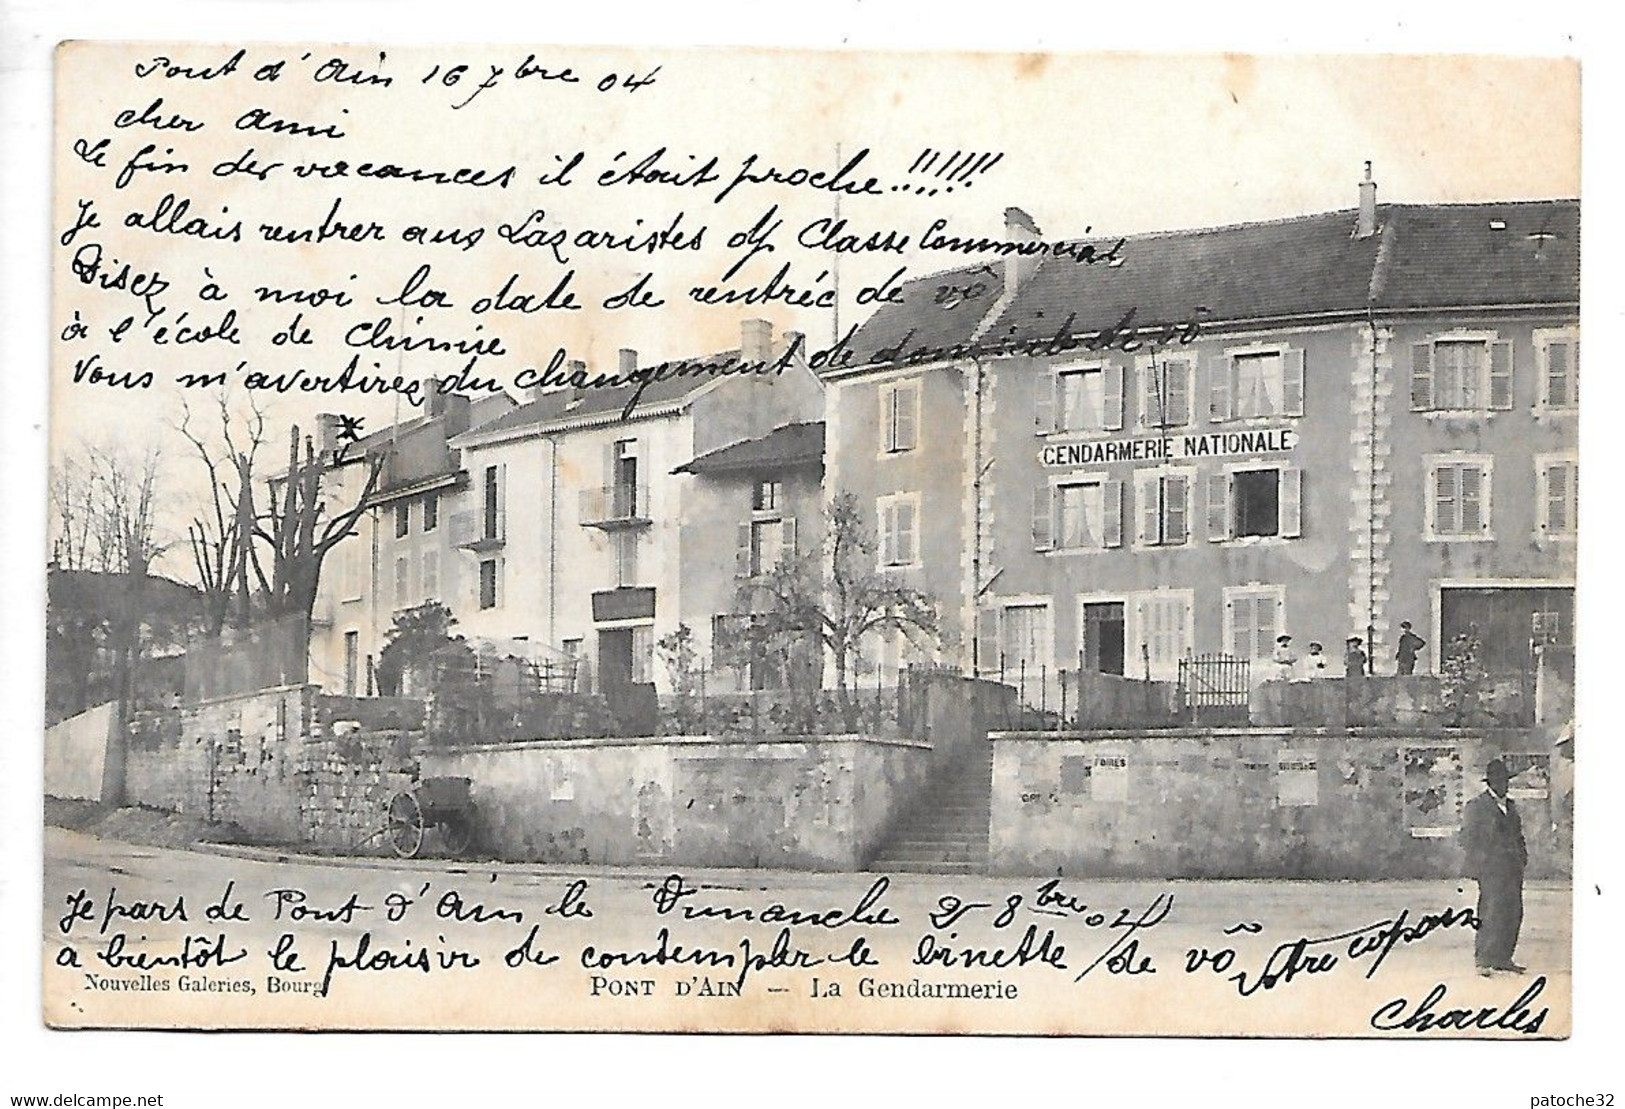 Pont d'Ain 16 7bre 04
cher Ami
Le fin der vacances il était proche !!!!!!
Je allais rentrer aux Lazaristes Classe Commercial
Disez à moi la date de rentrée de vô
à l'école de Chimie
Vous m'avertirez du changement de domicile de vô
GENDARMERIE NATIONALE
FOIRES
Je pars de Pont d'Ain le Dimanche 2 8bre 04
a bientôt le plaisir de contempler le binette de vô
Vôtre copain
Charles
Nouvelles Galeries, Bourg
PONT D'AIN — La Gendarmerie
delcampe.net
patoche32